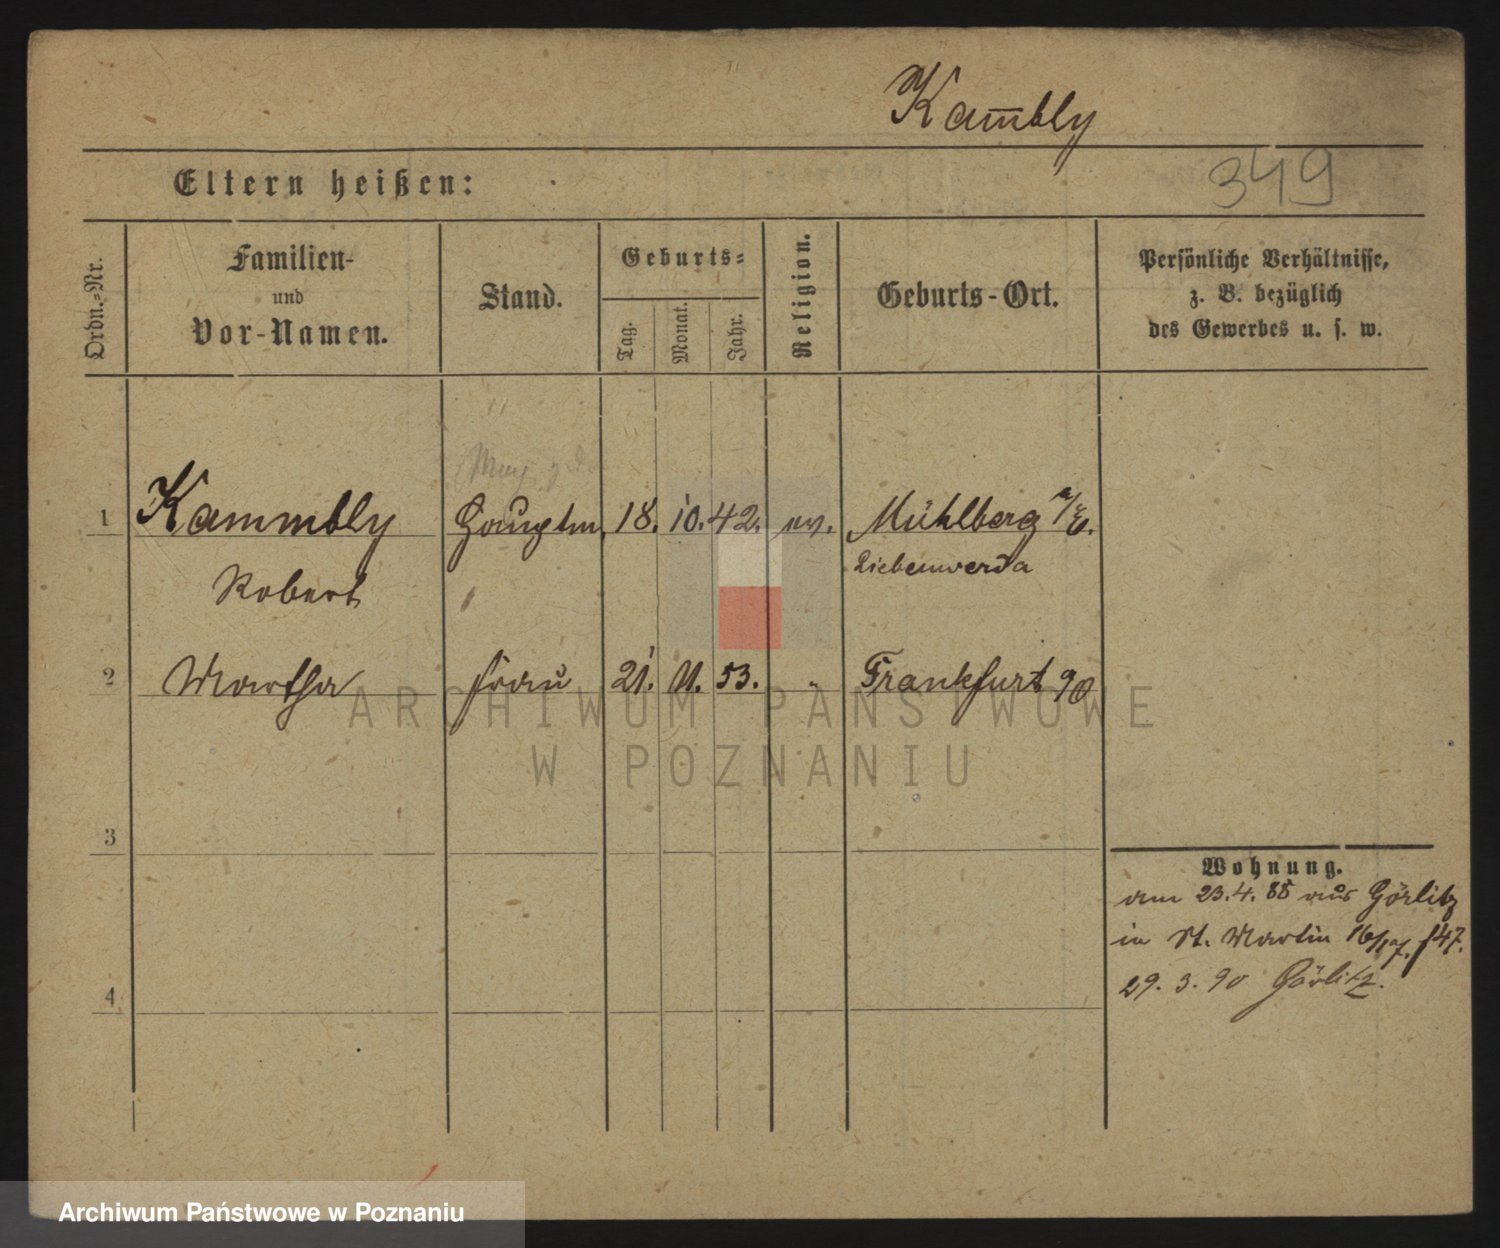 Kam̅bly
Eltern heißen:
349
Ordn.-Nr.
Familien-
und
Vor-Namen.
Stand.
Geburts-
Tag.
Monat.
Jahr.
Religion.
Geburts-Ort.
Persönliche Verhältnisse,
z. B. bezüglich
des Gewerbes u. s. w.
1 Kammbly Hauptm. 18. 10. 42. ev. Mühlberg a/E.
Liebenwerda
Robert
2 Martha frau 21. 11. 53. " Frankfurt a/O
ARCHIWUM PAŃSTWOWE
W POZNANIU
3
Wohnung.
am 23.4.85 aus Görlitz
in St. Martin 16/17. 147.
29. 3. 90 Görlitz.
4
Archiwum Państwowe w Poznaniu